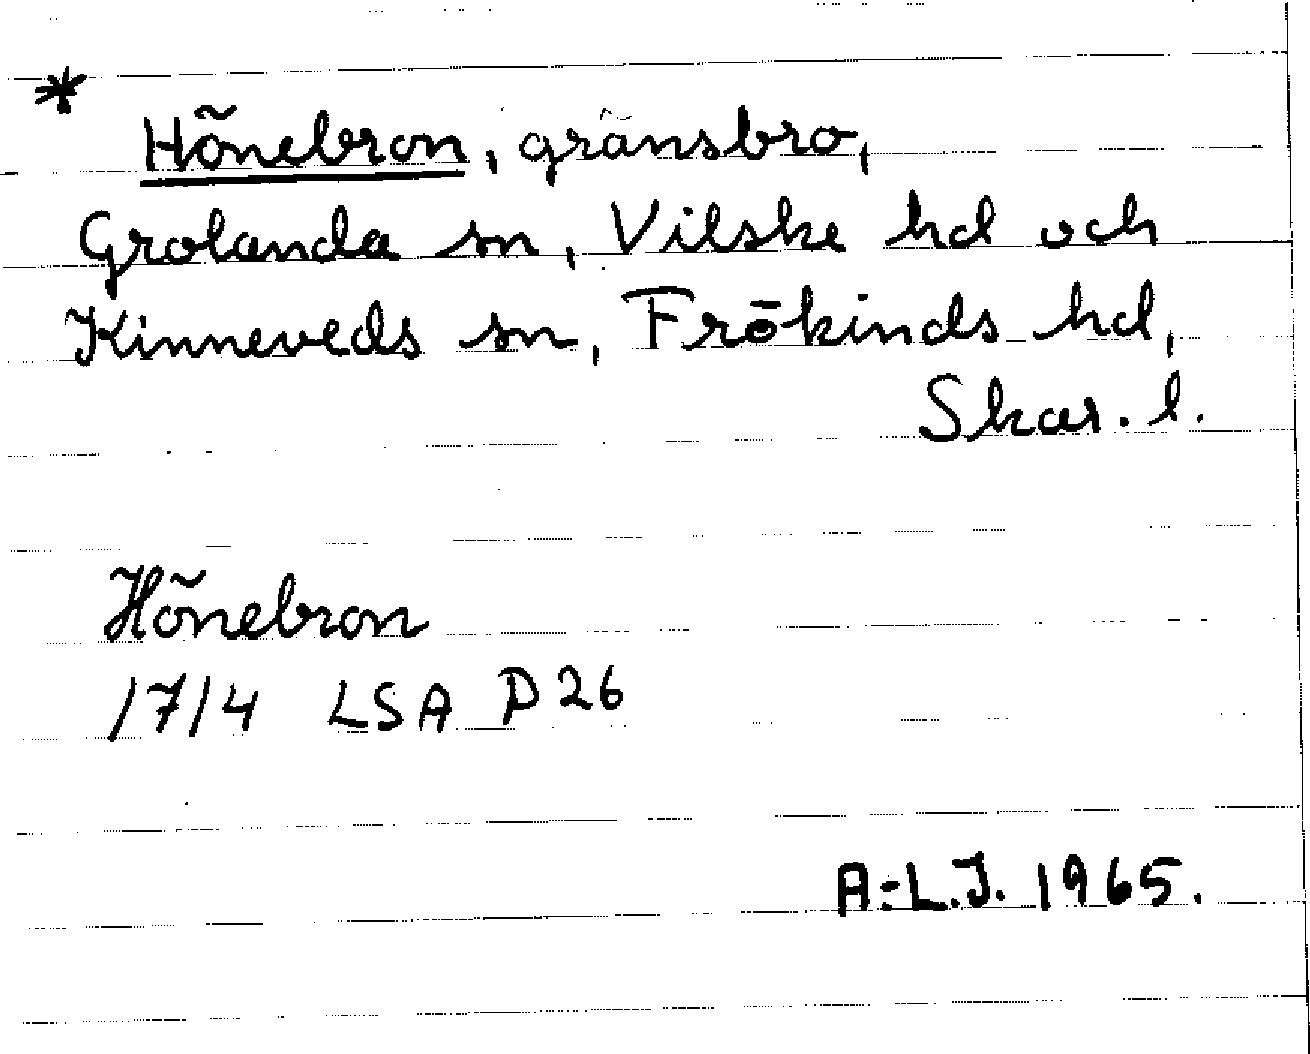 * Hönebron, gränsbro,
Grolanda sn, Vilske hd och
Kinneveds sn, Frökinds hd,
Skar. l.
Hönebron
1714 LSA P26
A:L.J. 1965.